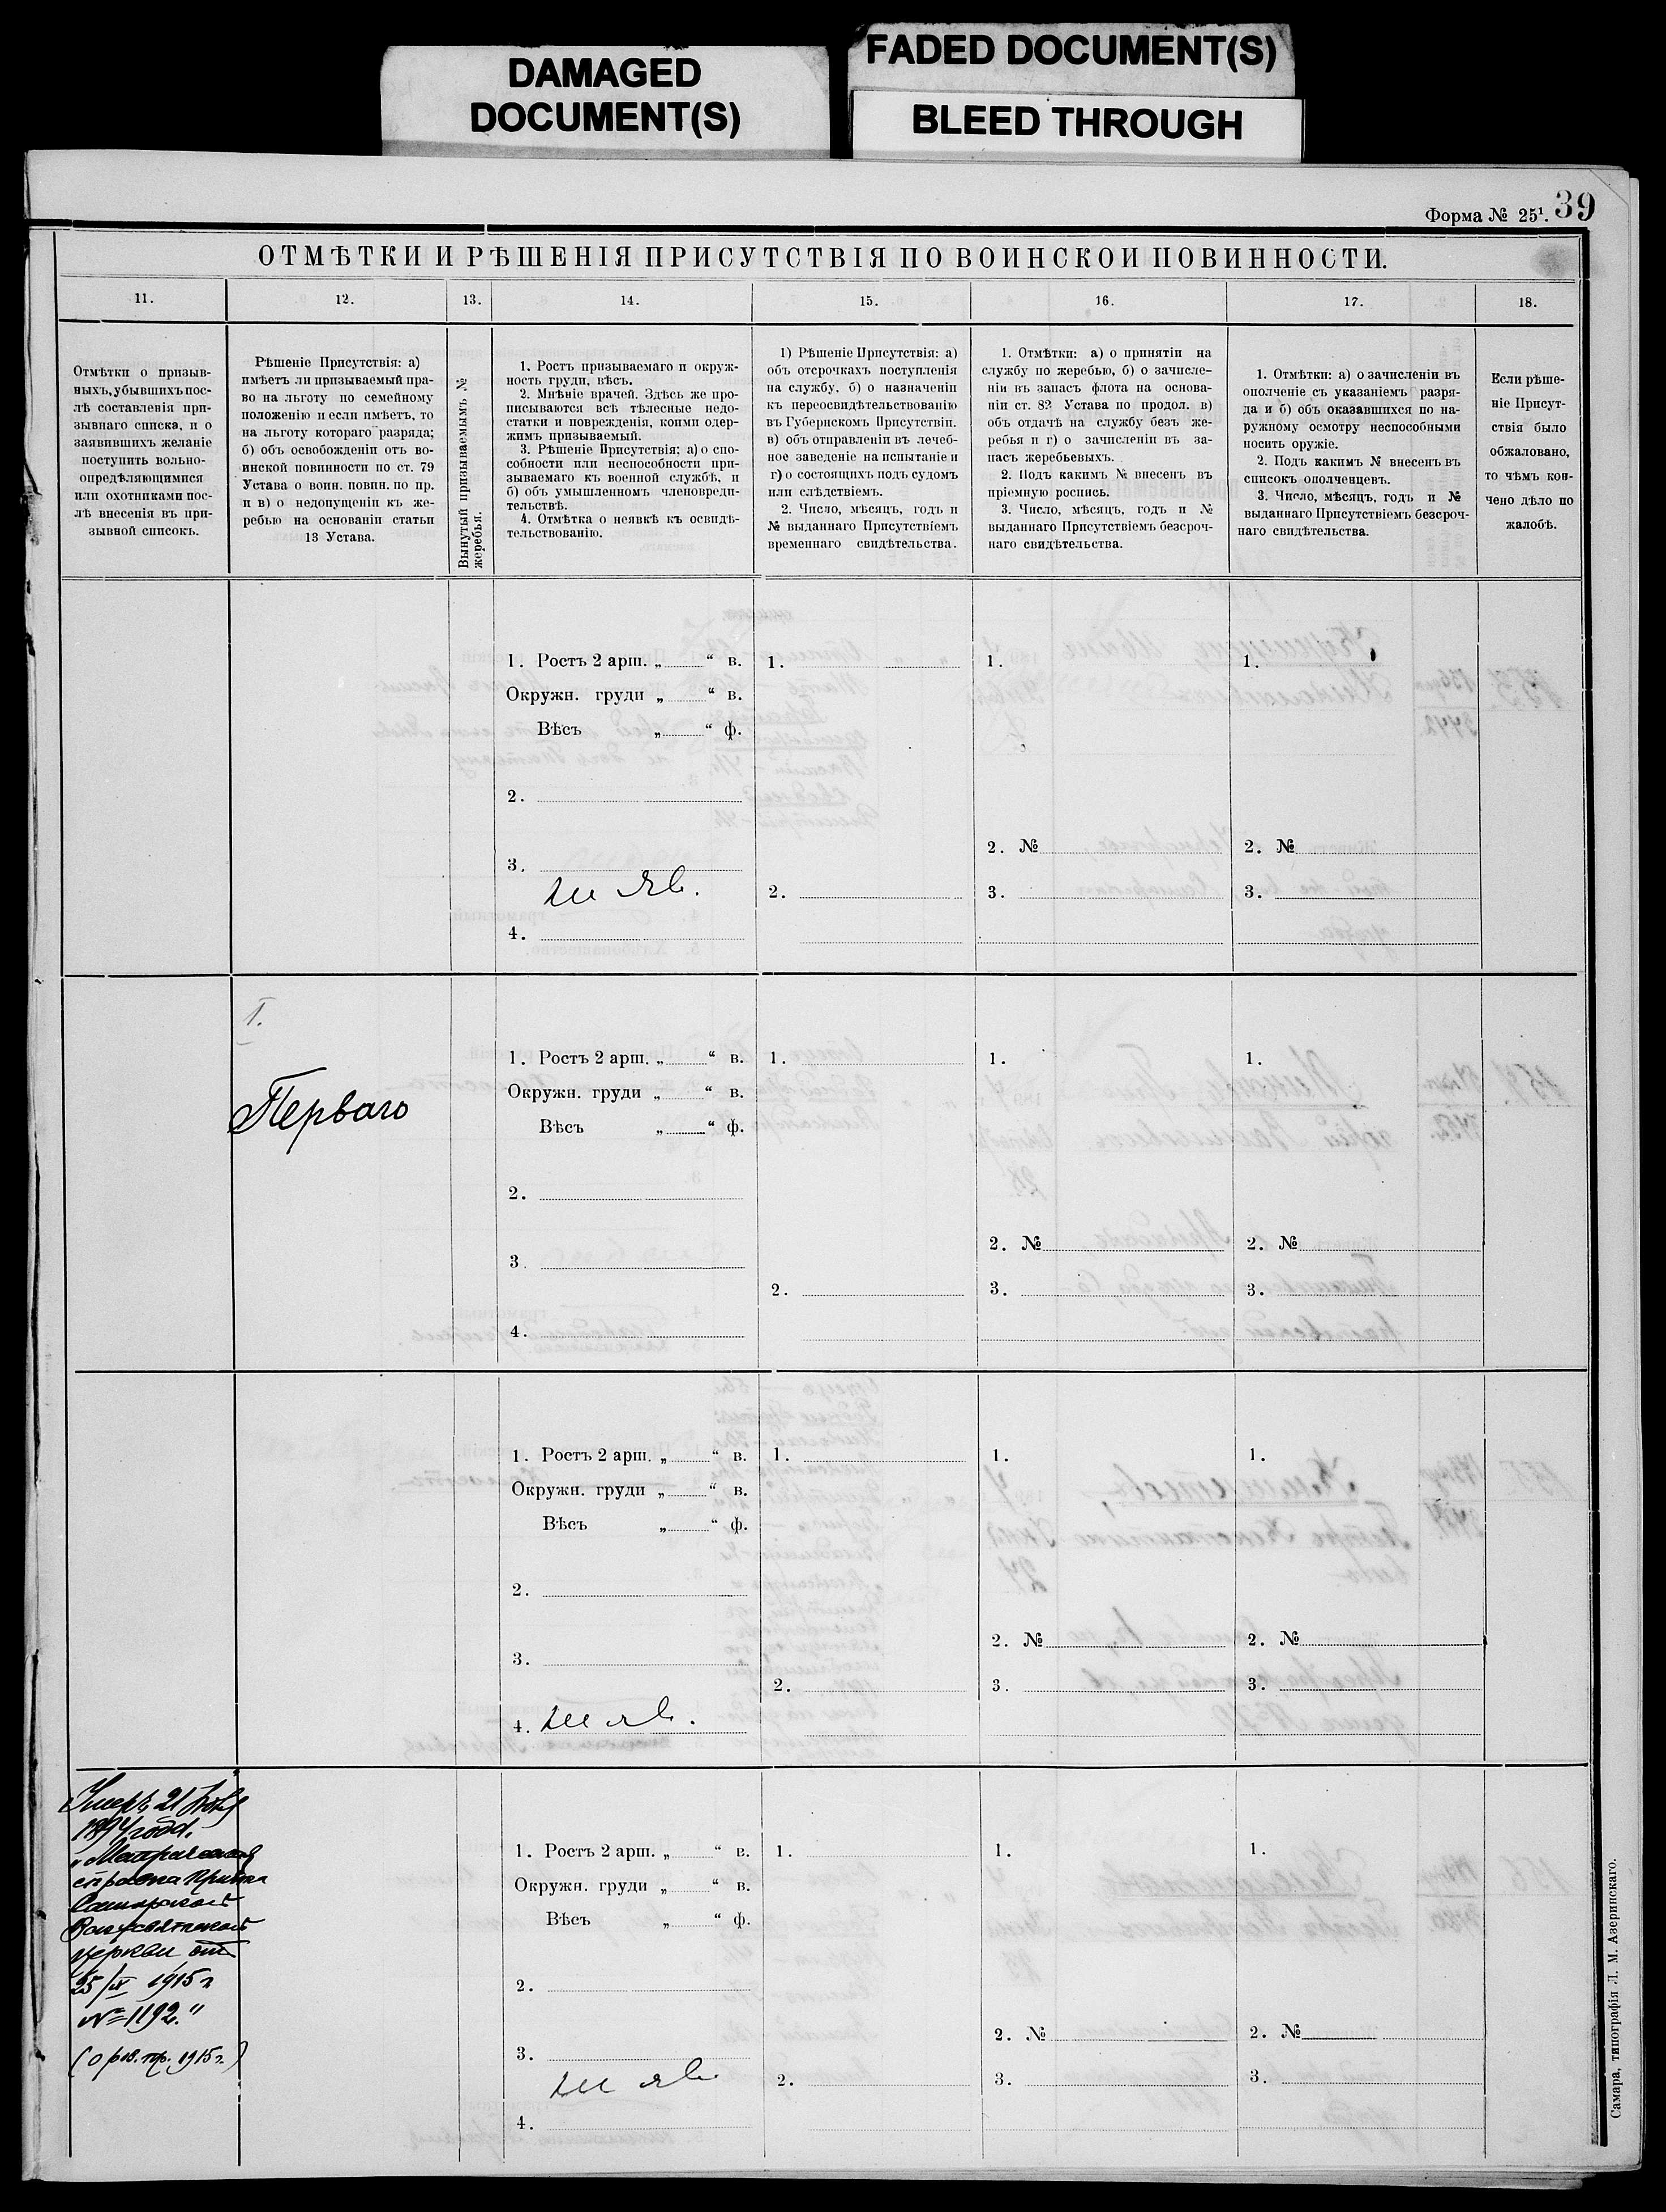 DAMAGED
DOCUMENT(S)
FADED DOCUMENT(S)
BLEED THROUGH
Форма № 25¹. 39
ОТМѢТКИ И РѢШЕНІЯ ПРИСУТСТВІЯ ПО ВОИНСКОЙ ПОВИННОСТИ.
11. 12. 13. 14. 15. 16. 17. 18.
Отмѣтки о призыв-
ныхъ, убывшихъ пос-
лѣ составленія при-
зывнаго списка, и о
заявившихъ желаніе
поступить вольно-
опредѣляющимися
или охотниками пос-
лѣ внесенія въ при-
зывной списокъ.
Рѣшеніе Присутствія: а)
имѣетъ ли призываемый пра-
во на льготу по семейному
положенію и если имѣетъ, то
на льготу котораго разряда;
б) объ освобожденіи отъ во-
инской повинности по ст. 79
Устава о воин. повин. по пр.
и в) о недопущеніи къ же-
ребью на основаніи статьи
13 Устава.
Вынутый призываемымъ №
жеребья.
1. Ростъ призываемаго и окруж-
ность груди, вѣсъ.
2. Мнѣніе врачей. Здѣсь же про-
писываются всѣ тѣлесные недо-
статки и поврежденія, коими одер-
жимъ призываемый.
3. Рѣшеніе Присутствія; а) о спо-
собности или неспособности при-
зываемаго къ военной службѣ, и
б) объ умышленномъ членовреди-
тельствѣ.
4. Отмѣтка о неявкѣ къ освидѣ-
тельствованію.
1) Рѣшеніе Присутствія: а)
объ отсрочкахъ поступленія
на службу, б) о назначеніи
къ переосвидѣтельствованію
въ Губернскомъ Присутствіи.
в) объ отправленіи въ лечеб-
ное заведеніе на испытаніе и
г) о состоящихъ подъ судомъ
или слѣдствіемъ.
2. Число, мѣсяцъ, годъ и
№ выданнаго Присутствіемъ
временнаго свидѣтельства.
1. Отмѣтки: а) о принятіи на
службу по жеребью, б) о зачисле-
ніи въ запасъ флота на основа-
ніи ст. 82 Устава по продол. в)
объ отдачѣ на службу безъ же-
ребья и г) о зачисленіи въ за-
пасъ жеребьевыхъ.
2. Подъ какимъ № внесенъ въ
пріемную роспись.
3. Число, мѣсяцъ, годъ и №
выданнаго Присутствіемъ безсроч-
наго свидѣтельства.
1. Отмѣтки: а) о зачисленіи въ
ополченіе съ указаніемъ разря-
да и б) объ оказавшихся по на-
ружному осмотру неспособными
носить оружіе.
2. Подъ какимъ № внесенъ въ
списокъ ополченцевъ.
3. Число, мѣсяцъ, годъ и №
выданнаго Присутствіемъ безсроч-
наго свидѣтельства.
Если рѣше-
ніе Присут-
ствія было
обжаловано,
то чѣмъ кон-
чено дѣло по
жалобѣ.
1. Ростъ 2 арш. „ “ в. 1. 1. 1.
Окружн. груди „ “ в.
Вѣсъ „ “ ф.
2.
2. № 2. №
3.
не яв. 2. 3. 3.
4.
I.
Перваго
1. Ростъ 2 арш. „ “ в. 1. 1. 1.
Окружн. груди „ “ в.
Вѣсъ „ “ ф.
2.
2. № 2. №
3.
2. 3. 3.
4.
1. Ростъ 2 арш. „ “ в. 1. 1. 1.
Окружн. груди „ “ в.
Вѣсъ „ “ ф.
2.
2. № 2. №
3.
2. 3. 3.
4. не яв.
Умеръ 21
1894 года.
справка Причта
Самарской
Всехсвятской
церкви от
25/IV 1915 г
№ 1192."
1. Ростъ 2 арш. „ “ в. 1. 1. 1.
Окружн. груди „ “ в.
Вѣсъ „ “ ф.
2.
2. № 2. №
3.
не яв 2. 3. 3.
4.
Самара, типографія Л. М. Азеринскаго.